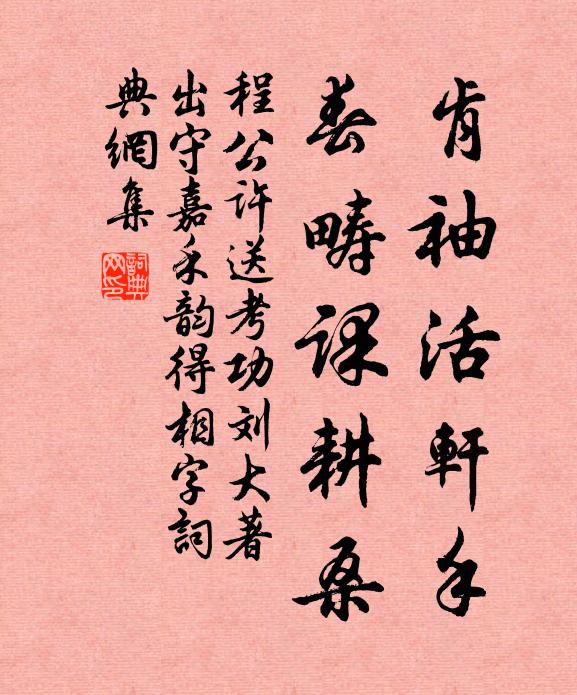 肯袖活軒手
春畴課耕桑
程公许送考功刘大著
出守嘉禾韵得相字詞
典網集
詞典網印